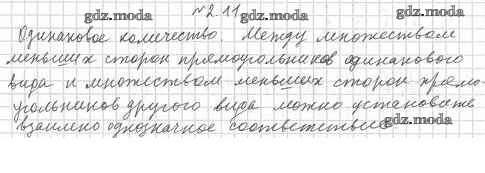 №2.11
Одинаковое количество. Между множеством
меньших сторон прямоугольников одинакового
вида и множеством меньших сторон прямо-
угольников другого вида можно установить
взаимно однозначное соответствие.
gdz.moda
gdz.moda
gdz.moda
gdz.moda